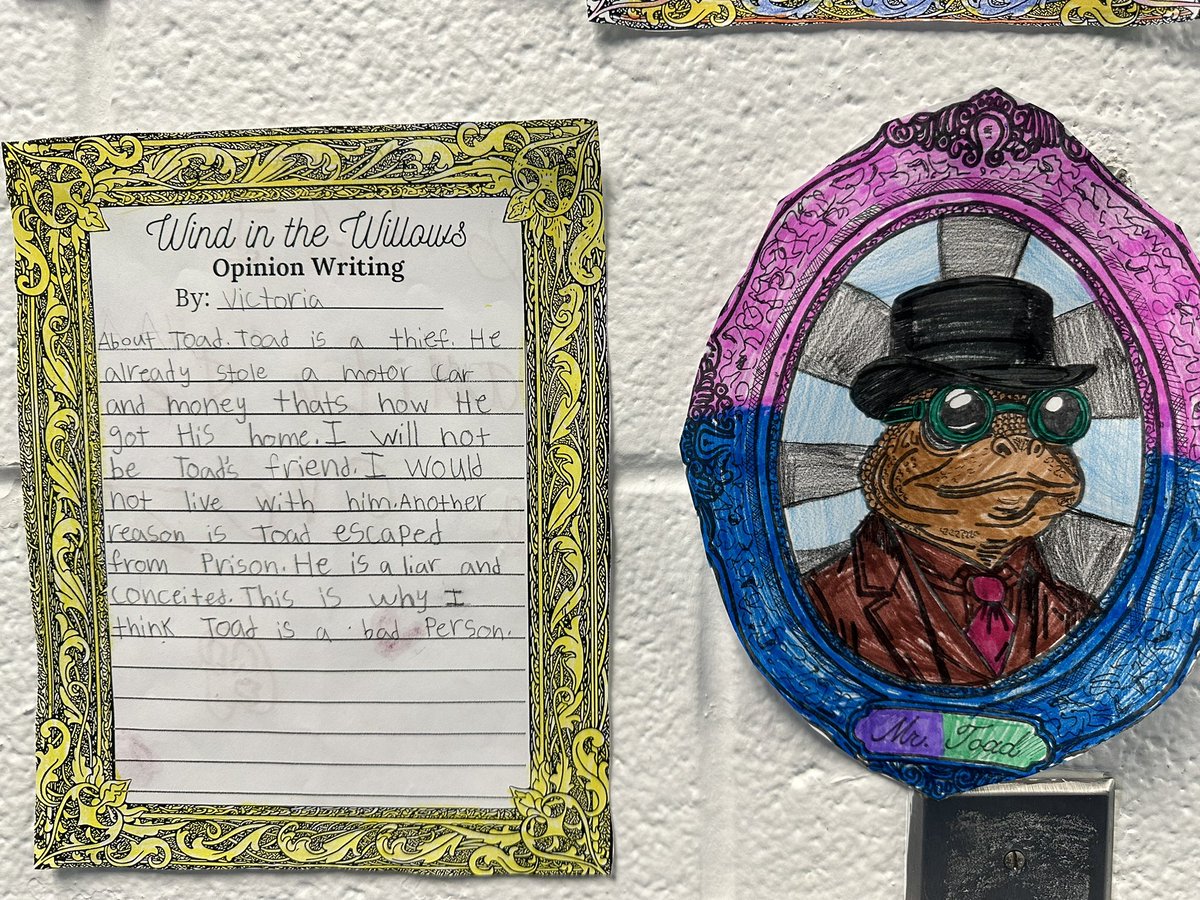 Wind in the Willows
Opinion Writing
By: Victoria
About Toad. Toad is a thief. He
already stole a motor car
and money thats how He
got His home. I will not
be Toad's friend. I would
not live with him. Another
reason is Toad escaped
from Prison. He is a liar and
conceited. This is why I
think Toad is a bad Person.
Mr. Toad